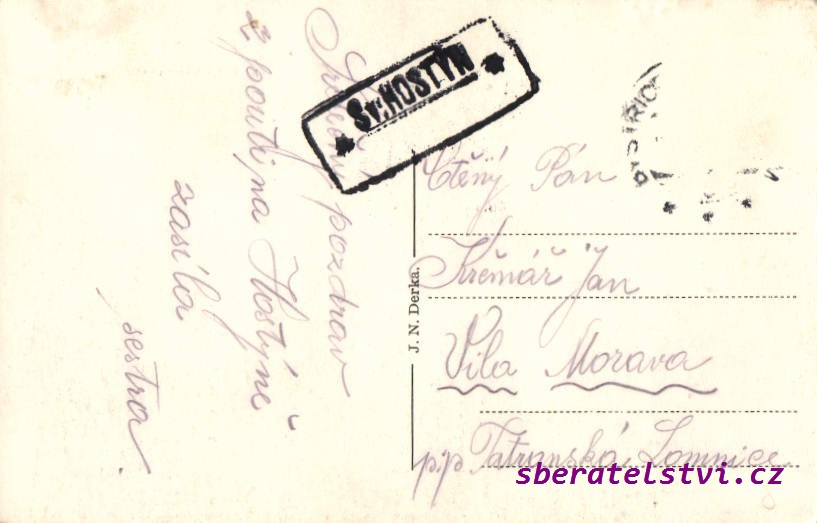 Srdečný pozdrav
z pouti na Hostýně
zasílá
sestra
Sv. HOSTÝN
J. N. Derka.
Ctěný Pán
Křemář Jan
Vila Morava
p.p. Tatranská Lomnice
sberatelstvi.cz